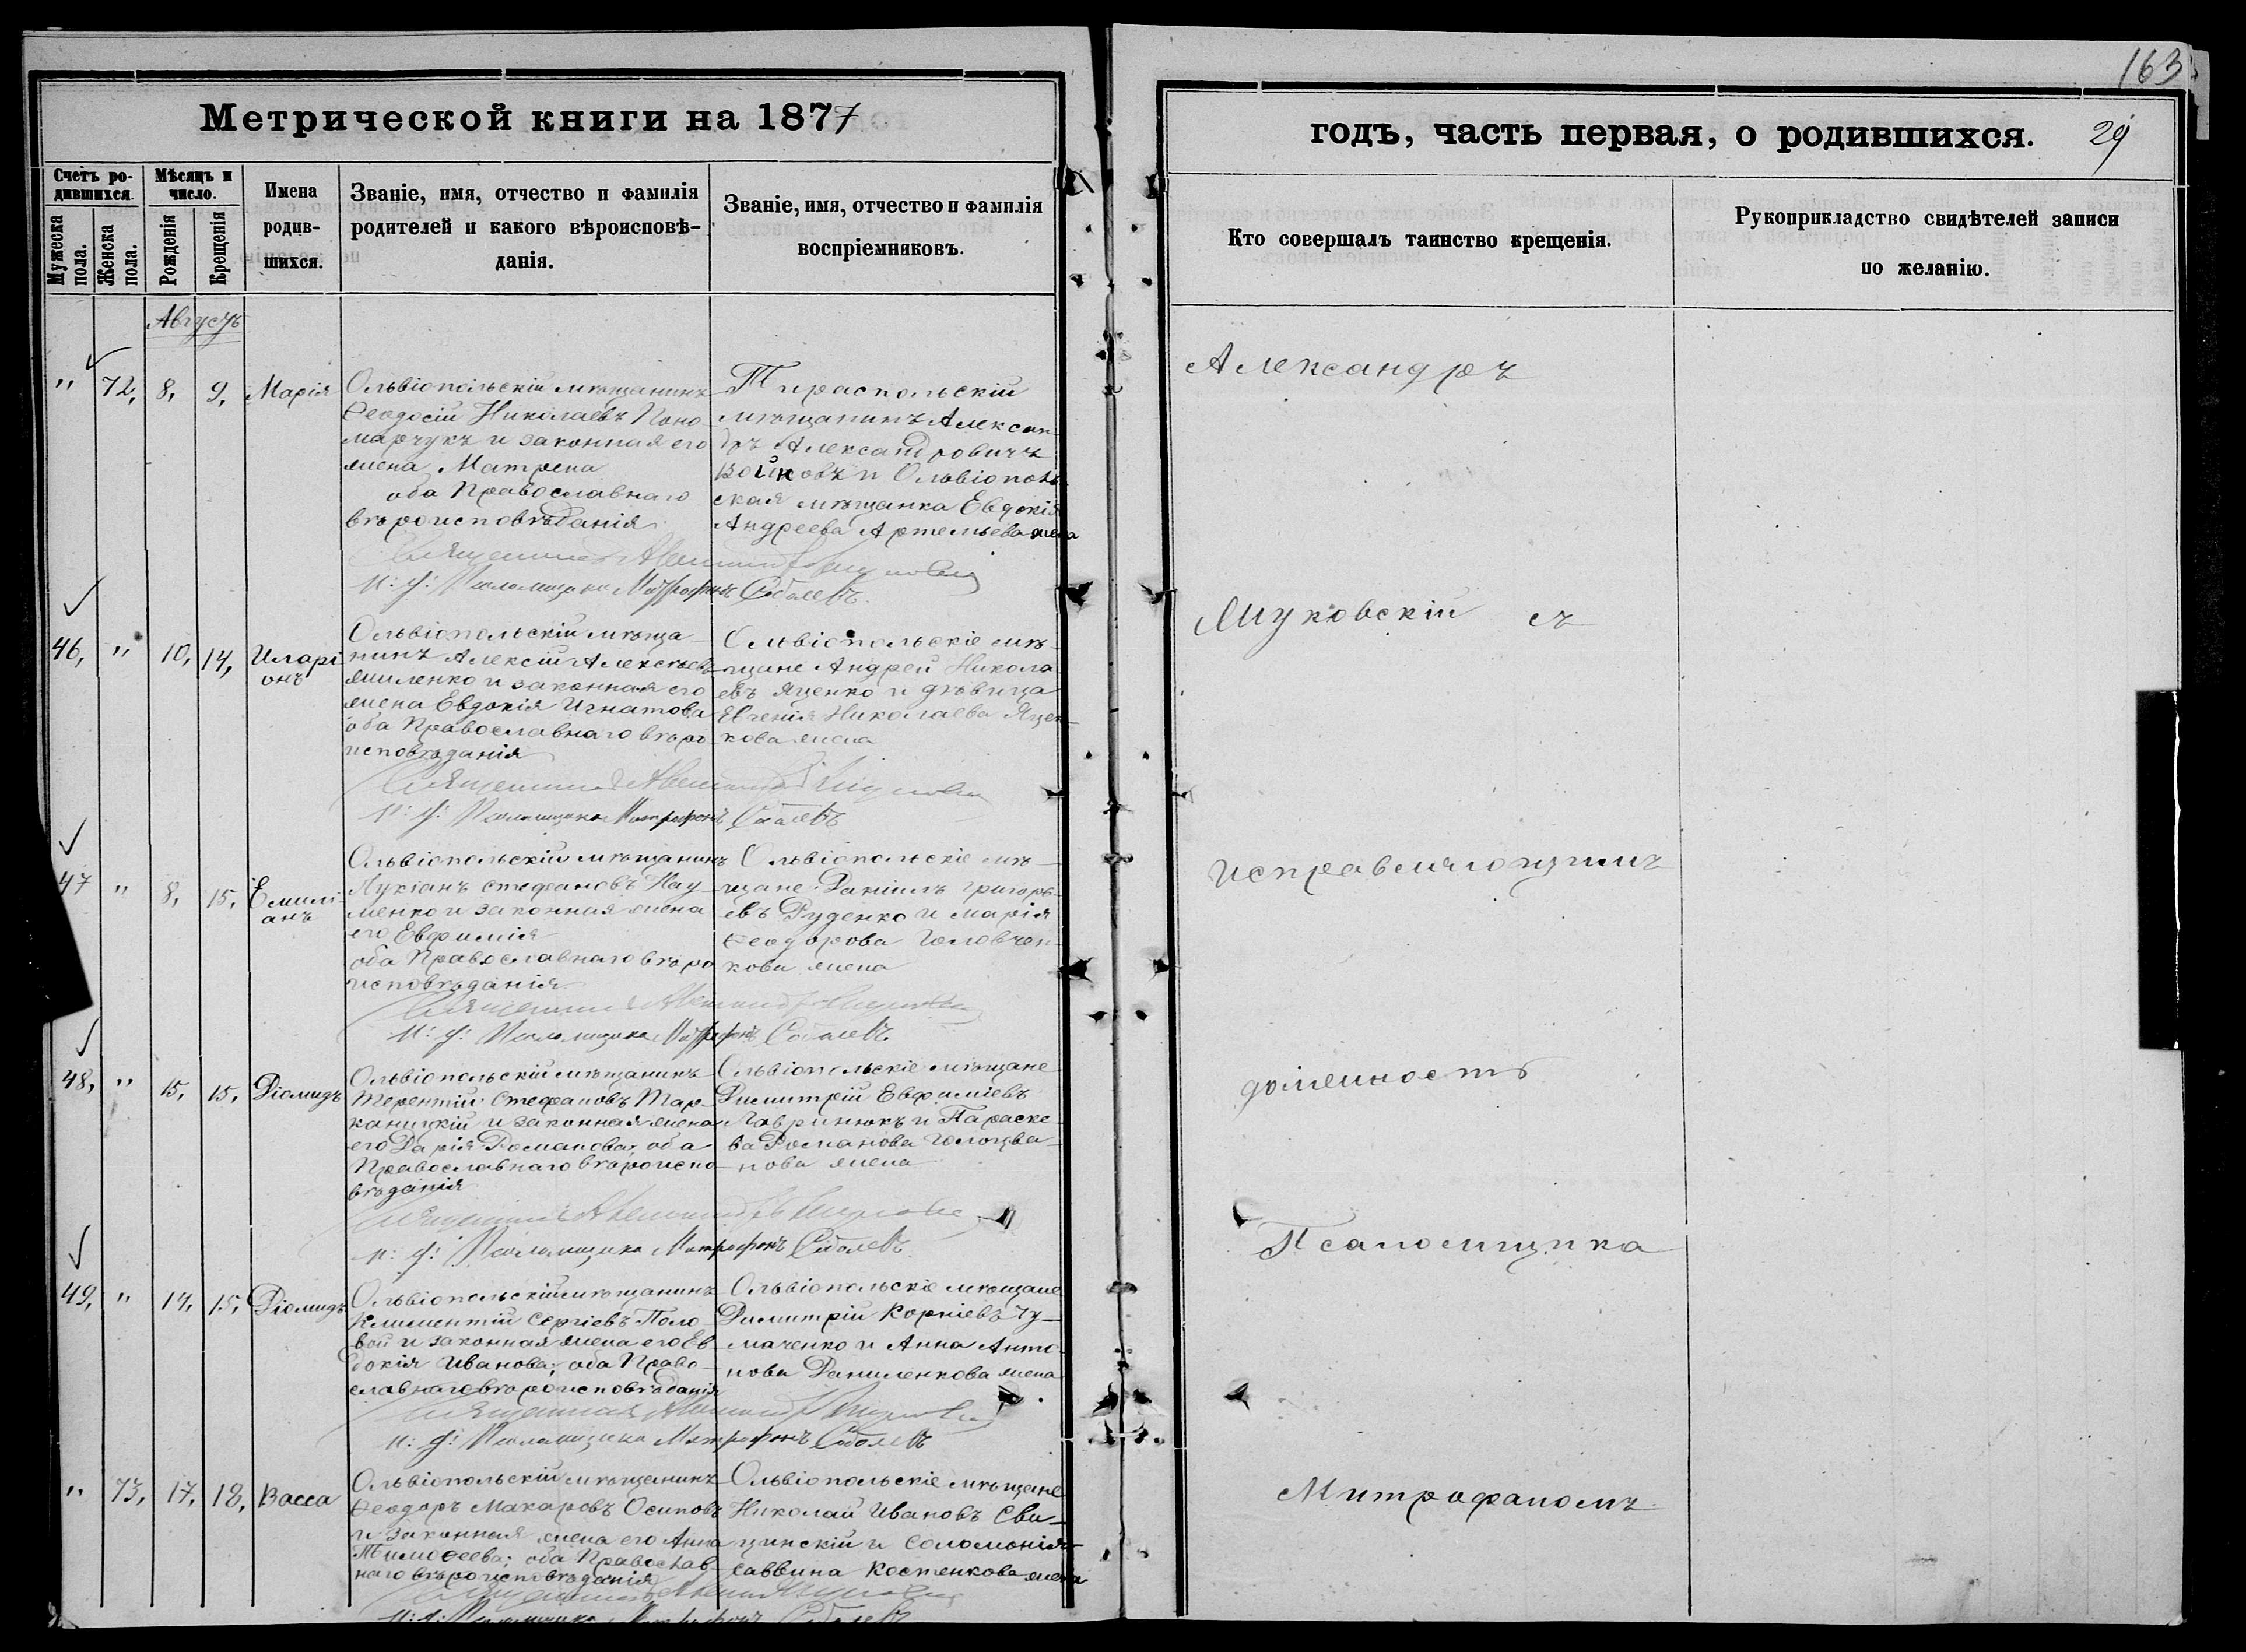 163
Метрической книги на 1877
годъ, часть первая, о родившихся. 29
Счетъ ро-
дившихся.
Мужеска
пола.
Женска
пола.
Мѣсяцъ и
число.
Рожденія
Крещенія
Имена
родив-
шихся.
Званіе, имя, отчество и фамилія
родителей и какого вѣроисповѣ-
данія.
Званіе, имя, отчество и фамилія
воспріемниковъ.
Кто совершалъ таинство крещенія.
Рукоприкладство свидѣтелей записи
по желанію.
Августъ
" 72, 8, 9, Марія
Ольвіопольскій мѣщанинъ
Ѳеодосій Николаевъ Поно
марчукъ и законная его
жена Матрена
оба Православнаго
вѣроисповѣданія
Тираспольскій
мѣщанинъ Алексан-
дръ Александровичъ
Войковъ и Ольвіополь
ская мѣщанка Евдокія
Андреева Артемьева жена
Священникъ Александръ
и: д: Псаломщика Митрофанъ Соболевъ.
46, " 10, 14, Иларі
онъ
Ольвіопольскій мѣща
нинъ Алексій Алексѣевъ
Шиленко и законная его
жена Евдокія Игнатова
оба Православнаго вѣро
исповѣданія
Ольвіопольскіе мѣ-
щане Андрей Никола
евъ Яценко и дѣвица
Евгенія Николаева Яцен-
кова жена
Священникъ Александръ
и: д: Псаломщика Митрофанъ Соболевъ
47 " 8, 15, Емилі-
анъ
Ольвіопольскій мѣщанинъ
Лукіанъ Стефановъ Нау-
менко и законная жена
его Евфимія
оба Православнаго вѣро
исповѣданія
Ольвіопольскіе мѣ-
щане Даніилъ Григорь-
евъ Руденко и Марія
Ѳеодорова Головчен-
кова жена
Священникъ Александръ
и: д: Псаломщика Митрофанъ Соболевъ
48, " 15, 15, Діомидъ
Ольвіопольскій мѣщанинъ
Терентій Стефановъ Тар-
каницкій и законная жена
его Дарія Романова, оба
Православнаго вѣроиспо-
вѣданія
Ольвіопольскіе мѣщане
Димитрій Евфиміевъ
Гавринюкъ и Параске-
ва Романова Голоцва-
нова жена
Священникъ Александръ
и: д: Псаломщика Митрофанъ Соболевъ
49, " 14, 15, Діомидъ
Ольвіопольскій мѣщанинъ
Климентій Сергіевъ Поло-
вой и законная жена его Ев
докія Иванова; оба Право-
славнаго вѣроисповѣданія
Ольвіопольскіе мѣщане
Димитрій Корніевъ Чу-
маченко и Анна Анто-
нова Даниленкова жена
Священникъ Александръ
и: д: Псаломщика Митрофанъ Соболевъ
" 73, 17, 18, Васса
Ольвіопольскій мѣщанинъ
Ѳеодоръ Макаровъ Осиповъ
и законная жена его Анна
Тимоѳеева; оба Православ-
наго вѣроисповѣданія
Ольвіопольскіе мѣщане
Николай Ивановъ Сви-
цинскій и Соломонія
Саввина Костенкова жена
Священникъ
и: д: Псаломщика Митрофанъ Соболевъ
Александръ
съ
исправляющимъ
должность
Псаломщика
Митрофаномъ